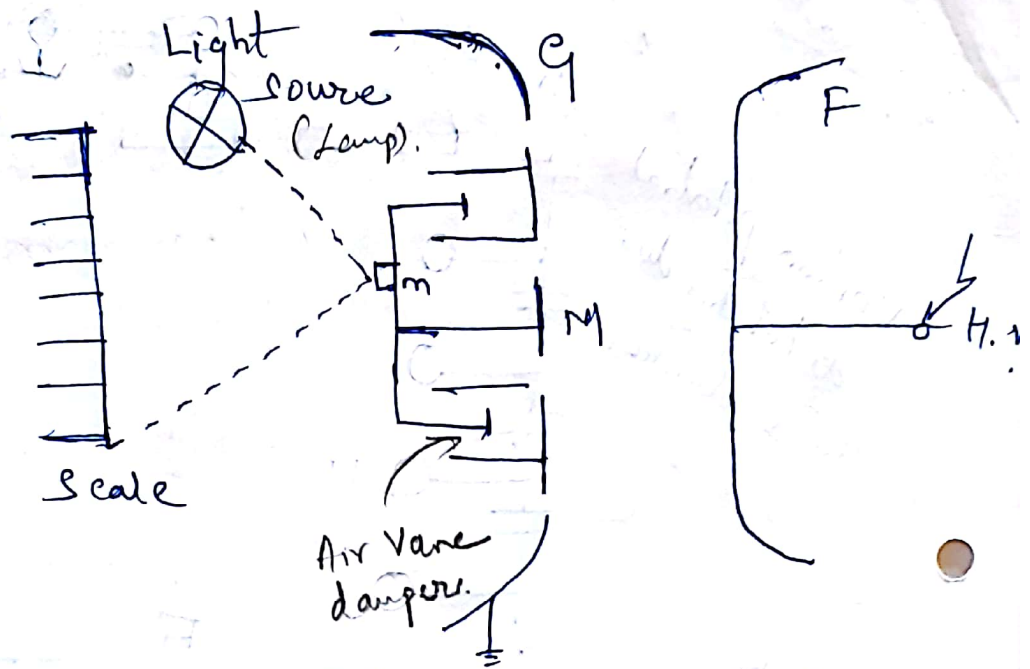 Light
Source
(Lamp).
G
F
m
M
H.
Scale
Air Vane
dampers.